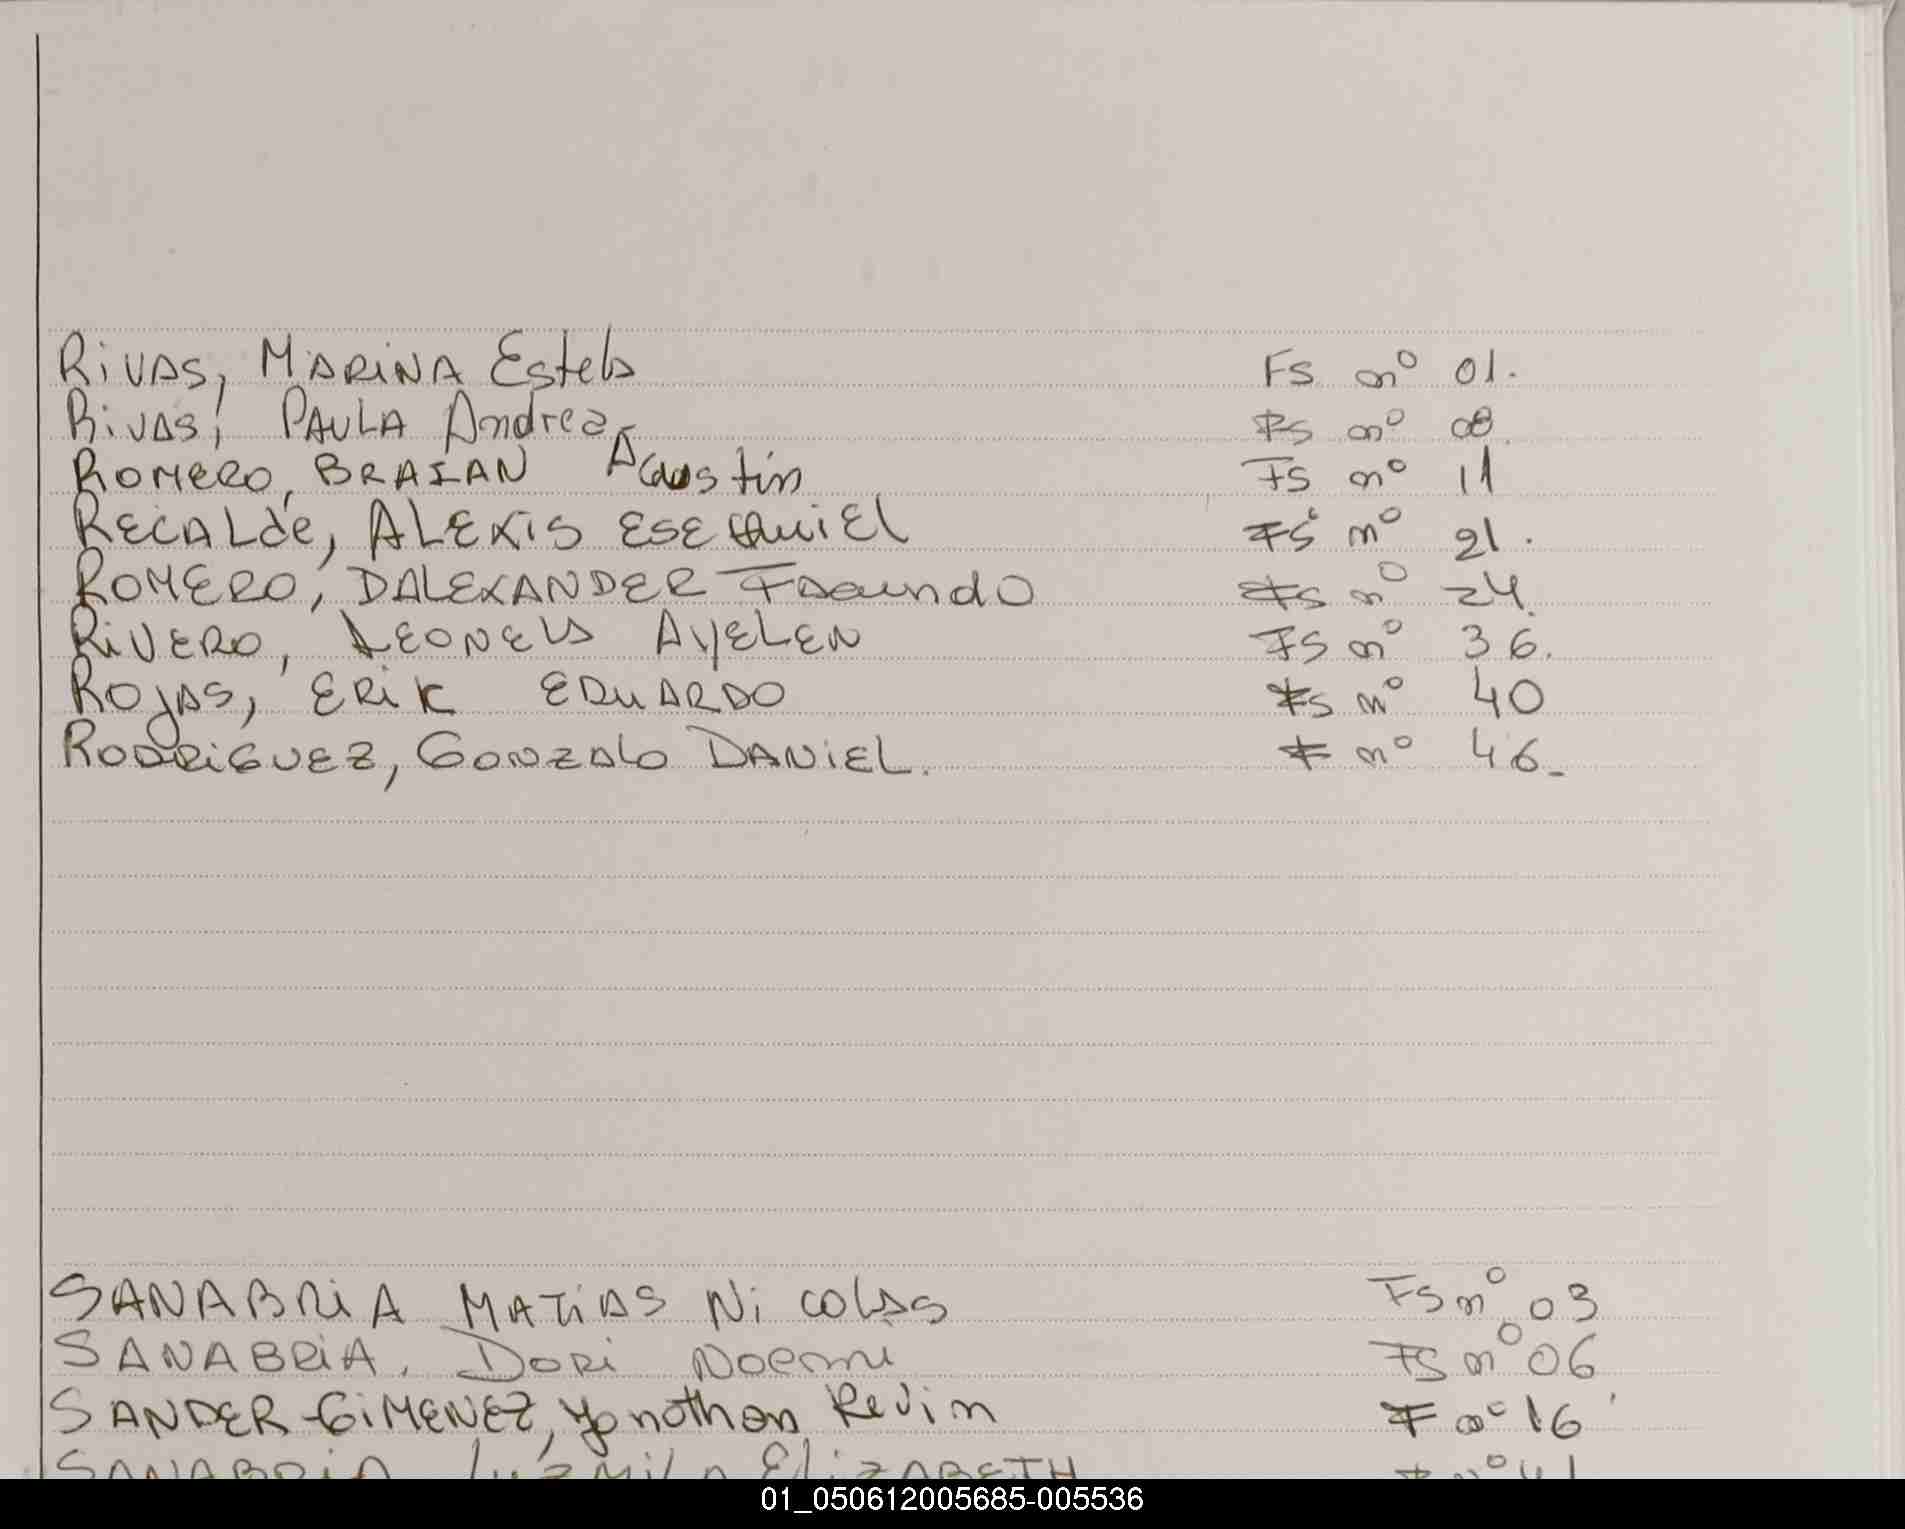 RiVAS, MARiNA Estela Fs nº 01.
RiVAS, PAULA Andrea Fs nº 08.
ROMERO, BRAIAN Agustin Fs nº 11
RECALde, ALEXiS ESEQuiEl Fs nº 21.
ROMERO, DALEXANDER Facundo Fs nº 24.
RiVERO, LEONELA AyELEN Fs nº 36.
ROjAS, ERiK EDuARDO Fs nº 40
RODRiGUEZ, GONZALO DANiEL. F nº 46.
SANABRiA MATiAS NiCOLAS Fs nº 03
SANABRiA, DORi Noemi Fs nº 06
SANDER-GiMENEZ, yonathan Kevin F nº 16
SANABRiA LuzMiLA EliZABETH F nº 41
01_050612005685-005536